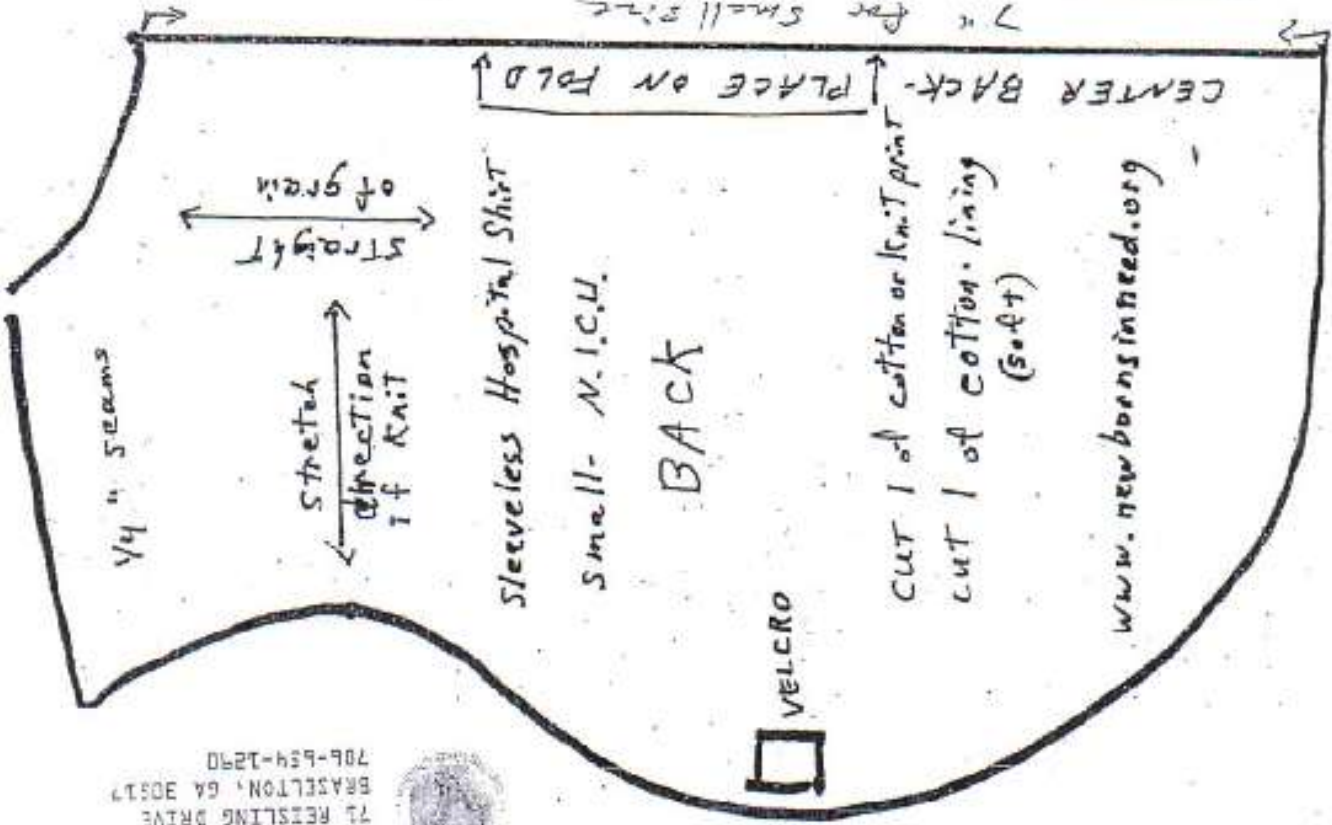 7" for Small Size
CENTER BACK - PLACE ON FOLD
straight
of grain
1/4" seams
stretch
direction
if knit
Sleeveless Hospital Shirt
small - N.I.C.U.
BACK
VELCRO
CUT 1 of cotton or knit print
CUT 1 of cotton - lining
(soft)
www.newbornsinneed.org
71 REISLING DRIVE
BRASELTON, GA 30517
706-654-1290